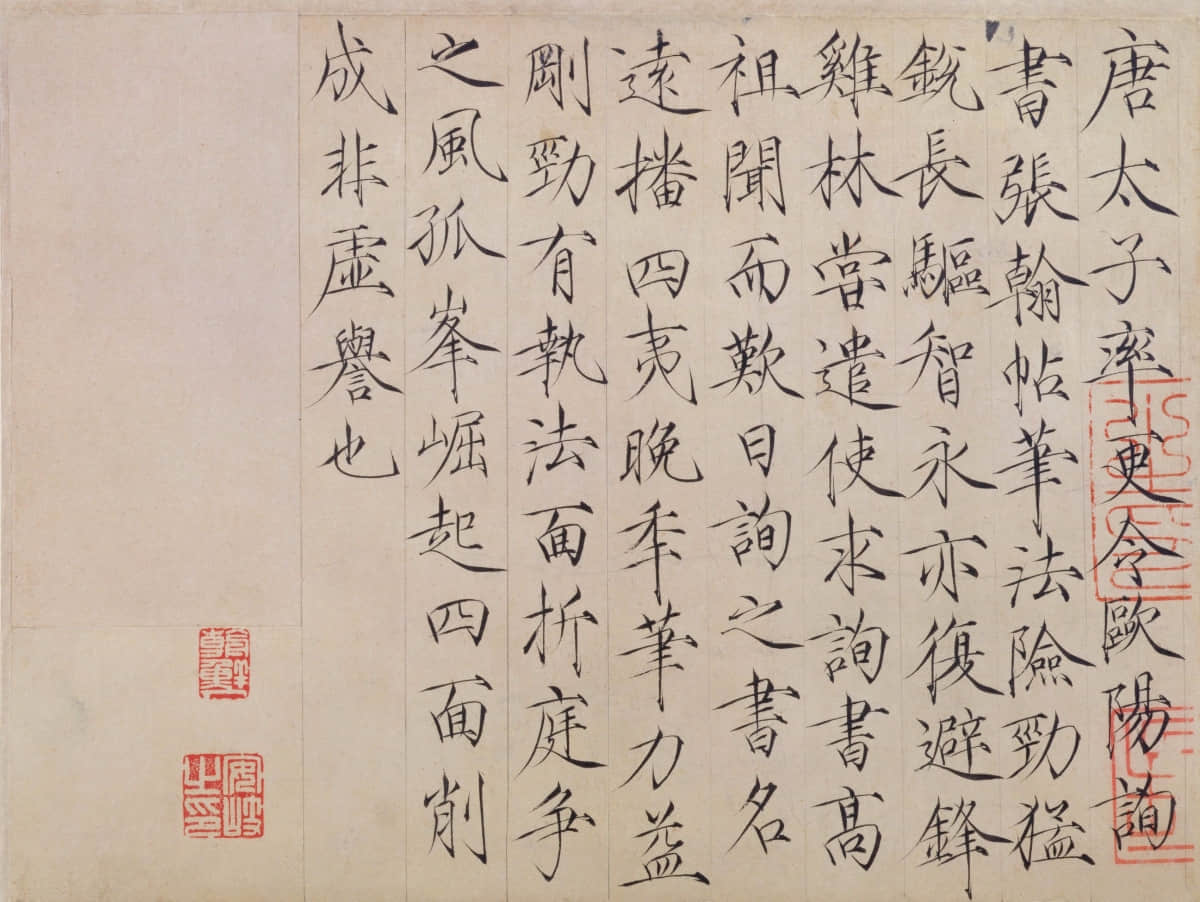 唐太子率更令歐陽詢
書張翰帖筆法險勁猛
銳長驅智永亦復避鋒
雞林嘗遣使求詢書高
祖聞而歎曰詢之書名
遠播四夷晚年筆力益
剛勁有執法面折庭争
之風孤峯崛起四面削
成非虛譽也
安岐
之印